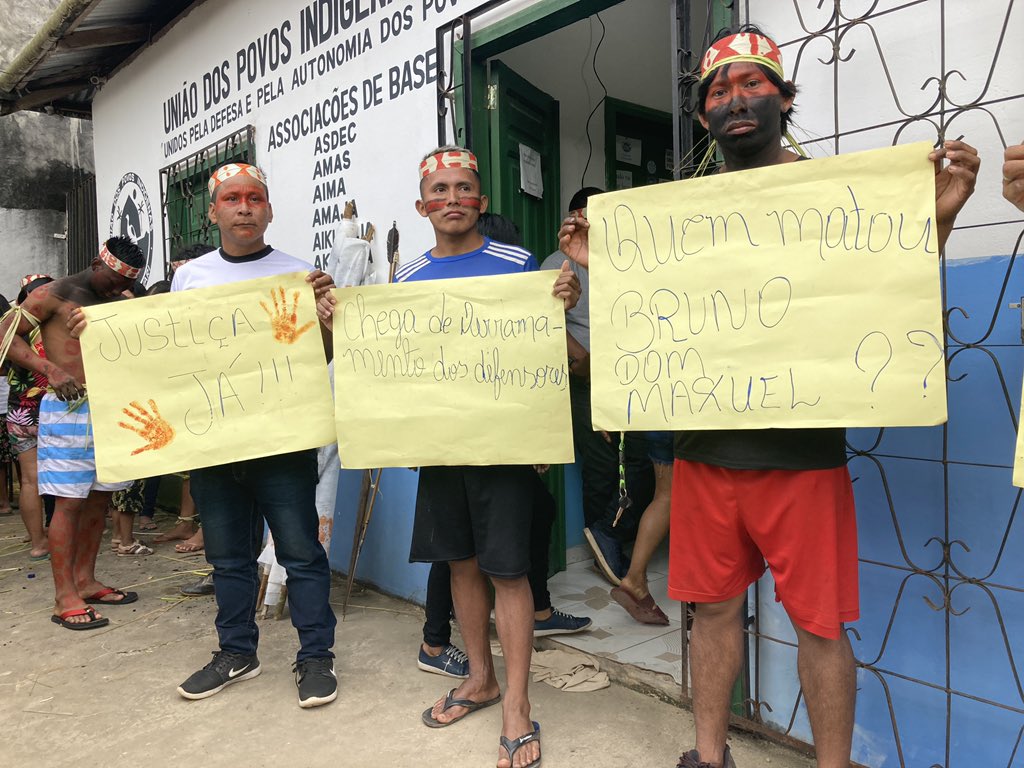 UNIÃO DOS POVOS INDÍGENA
UNIDOS PELA DEFESA E PELA AUTONOMIA DOS POV
ASSOCIACÕES DE BASE
ASDEC
AMAS
AIMA
AMA
AIKU
AK
JUSTIÇA
JÁ!!!
Chega de Dirrama-
mento dos difensores
Quem matou
BRUNO
DOM
MAXUEL ??